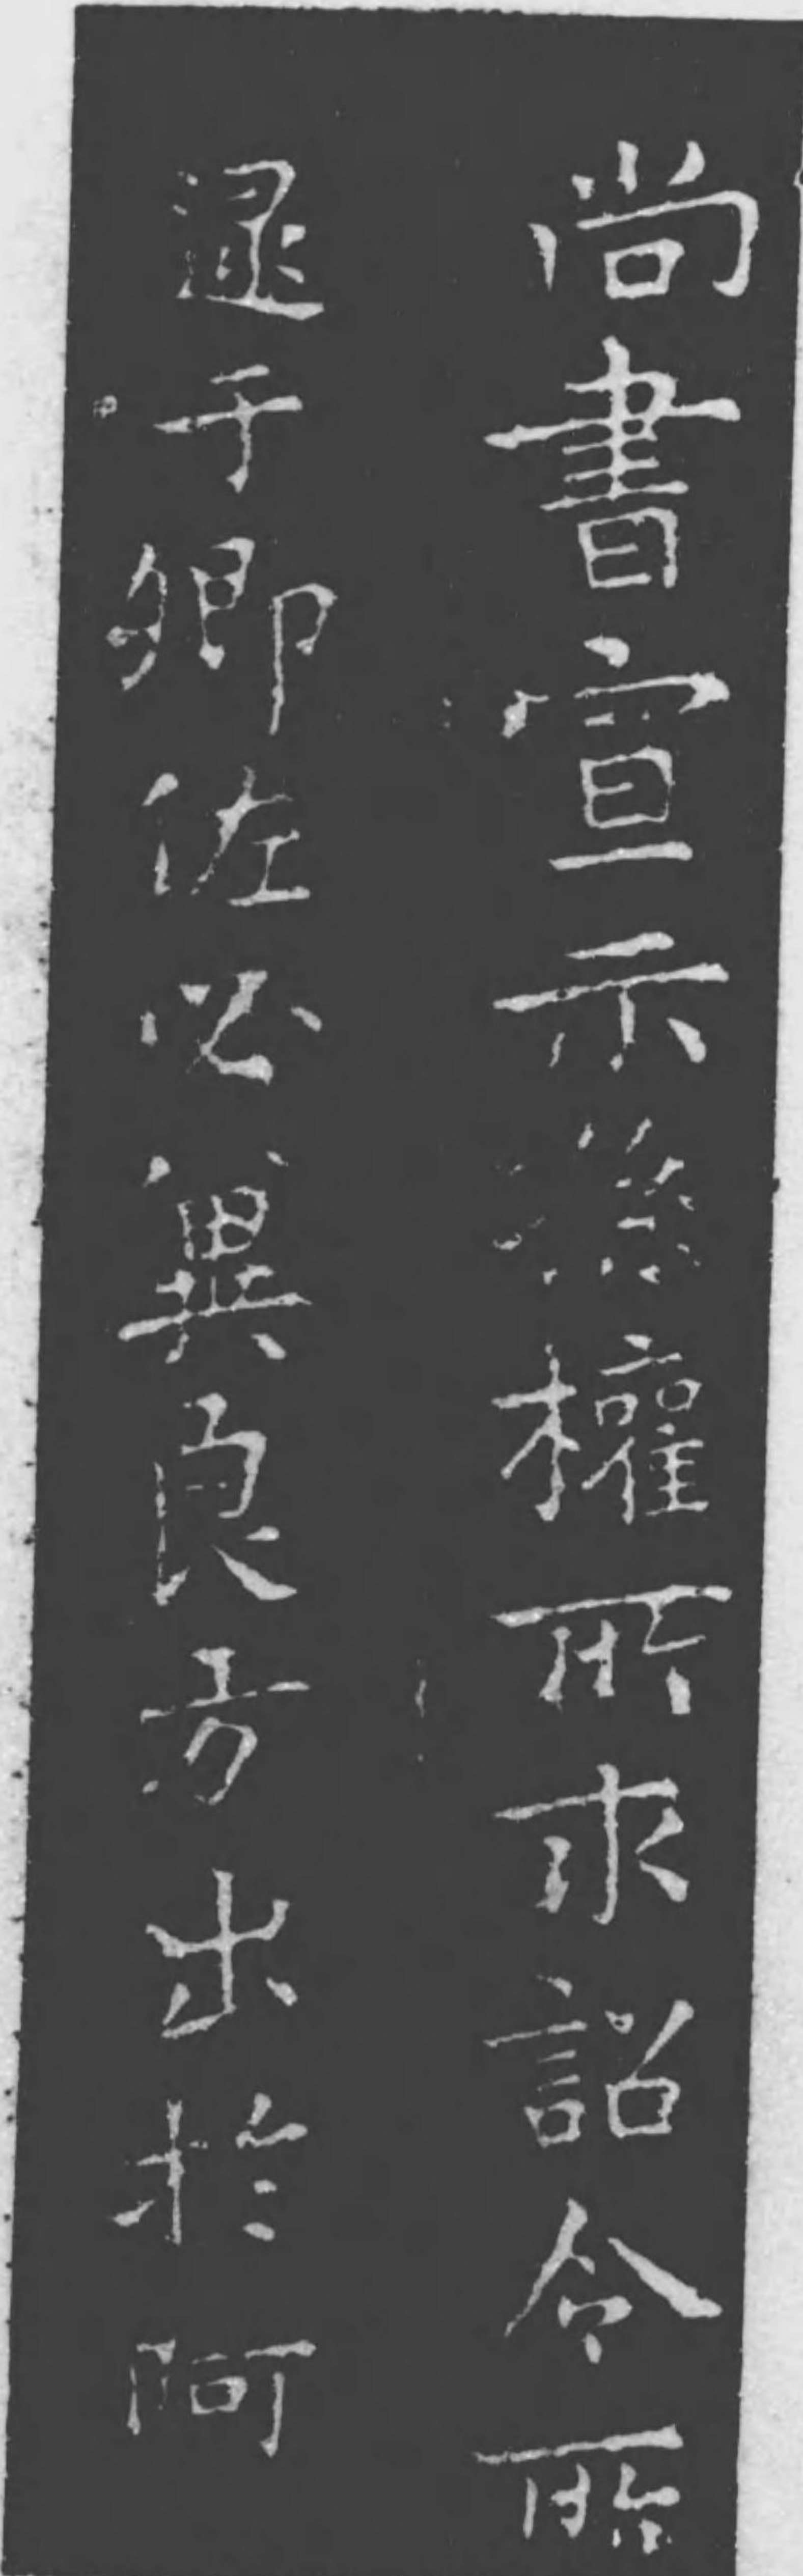 尚書宣示孫權所求詔令所
逮于卿佐必冀良方出於阿